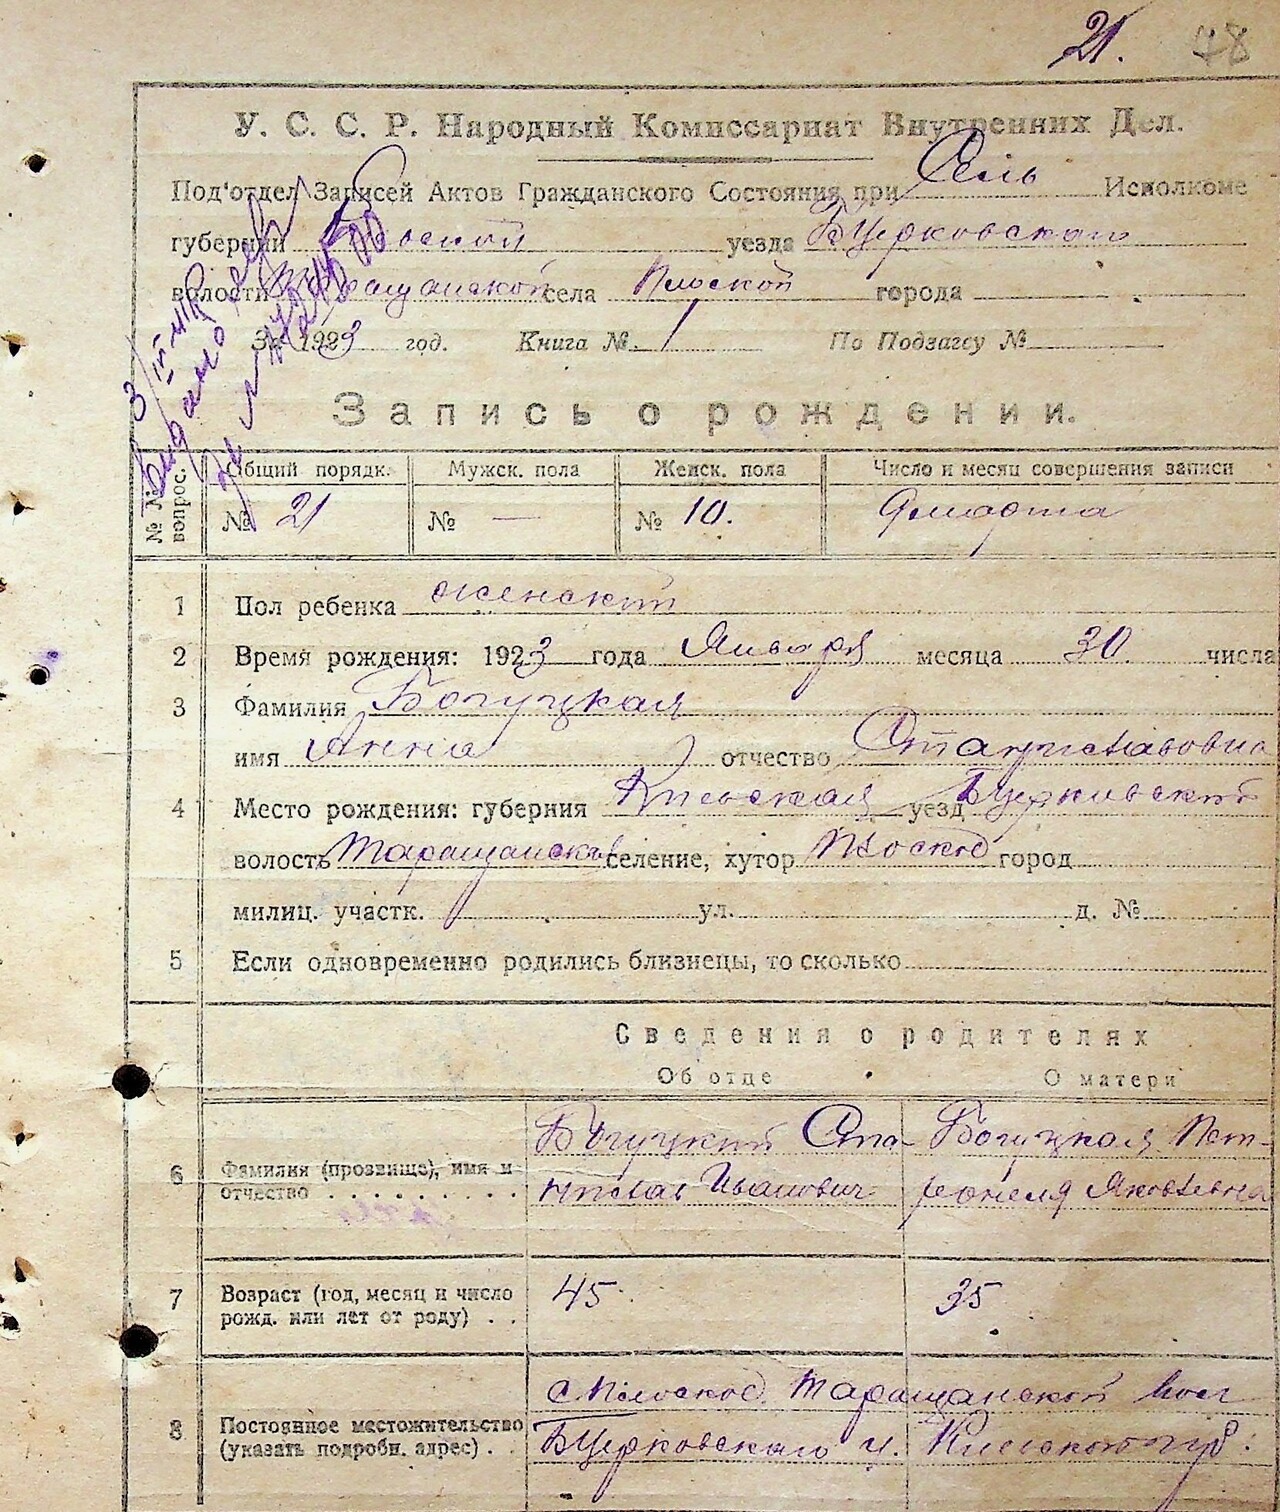 21. 48
У. С. С. Р. Народный Комиссариат Внутренних Дел.
Под'отдел Записей Актов Гражданского Состояния при Сель Исполкоме
губернии Киевской уезда БЦерковского
волости Таращанской села Плоской города
За 1923 год. Книга №. 1 По Подзагсу №
Запись о рождении.
№ № вопрос. Общий порядк. Мужск. пола Женск. пола Число и месяц совершения записи
№ 21 № — № 10. 9 марта
1 Пол ребенка женский
2 Время рождения: 1923 года Января месяца 30. числа
3 Фамилия Богуцкая
имя Анна отчество Станиславовна
4 Место рождения: губерния Киевская уезд БЦерковский
волость Таращанск селение, хутор Плоское город
милиц. участк. ул. д. №
5 Если одновременно родились близнецы, то сколько
Сведения о родителях
Об отце О матери
6 Фамилия (прозвище), имя и отчество Богуцкий Ста- Богуцкая Пет-
нислав Иванович ронеля Яковлевна
7 Возраст (год, месяц и число рожд. или лет от роду) . . 45 35
8 Постоянное местожительство (указать подробн. адрес) . . с Плоское Таращанской вол
БЦерковского у. Киевской губ.